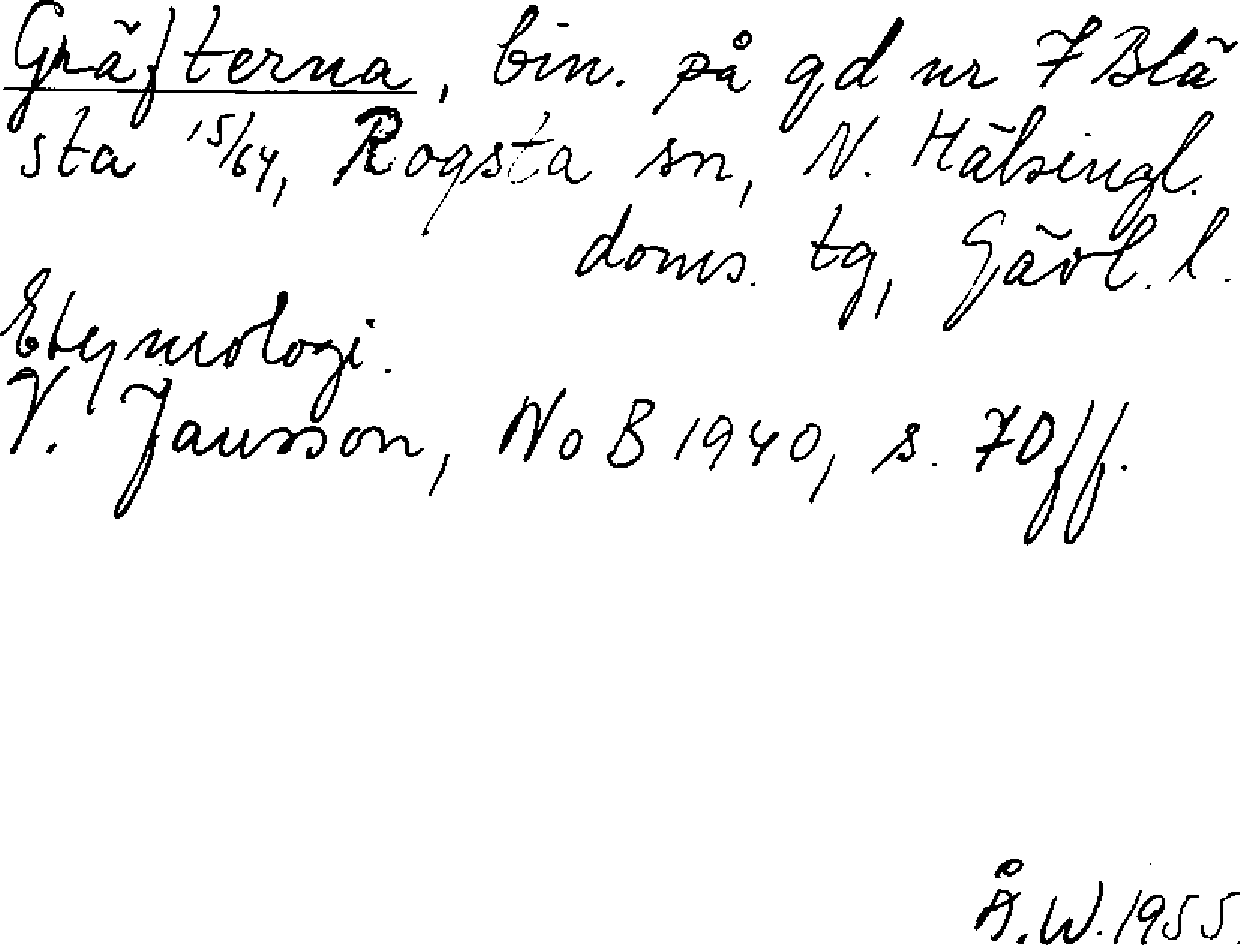 Gräfterna, bin. på gd nr 7 Blä
sta 15/64, Rogsta sn, N. Hälsingl.
doms. tg, Gävl. l.
Etymologi.
V. Jansson, NoB 1940, s. 70 ff.
Å.W. 1955.